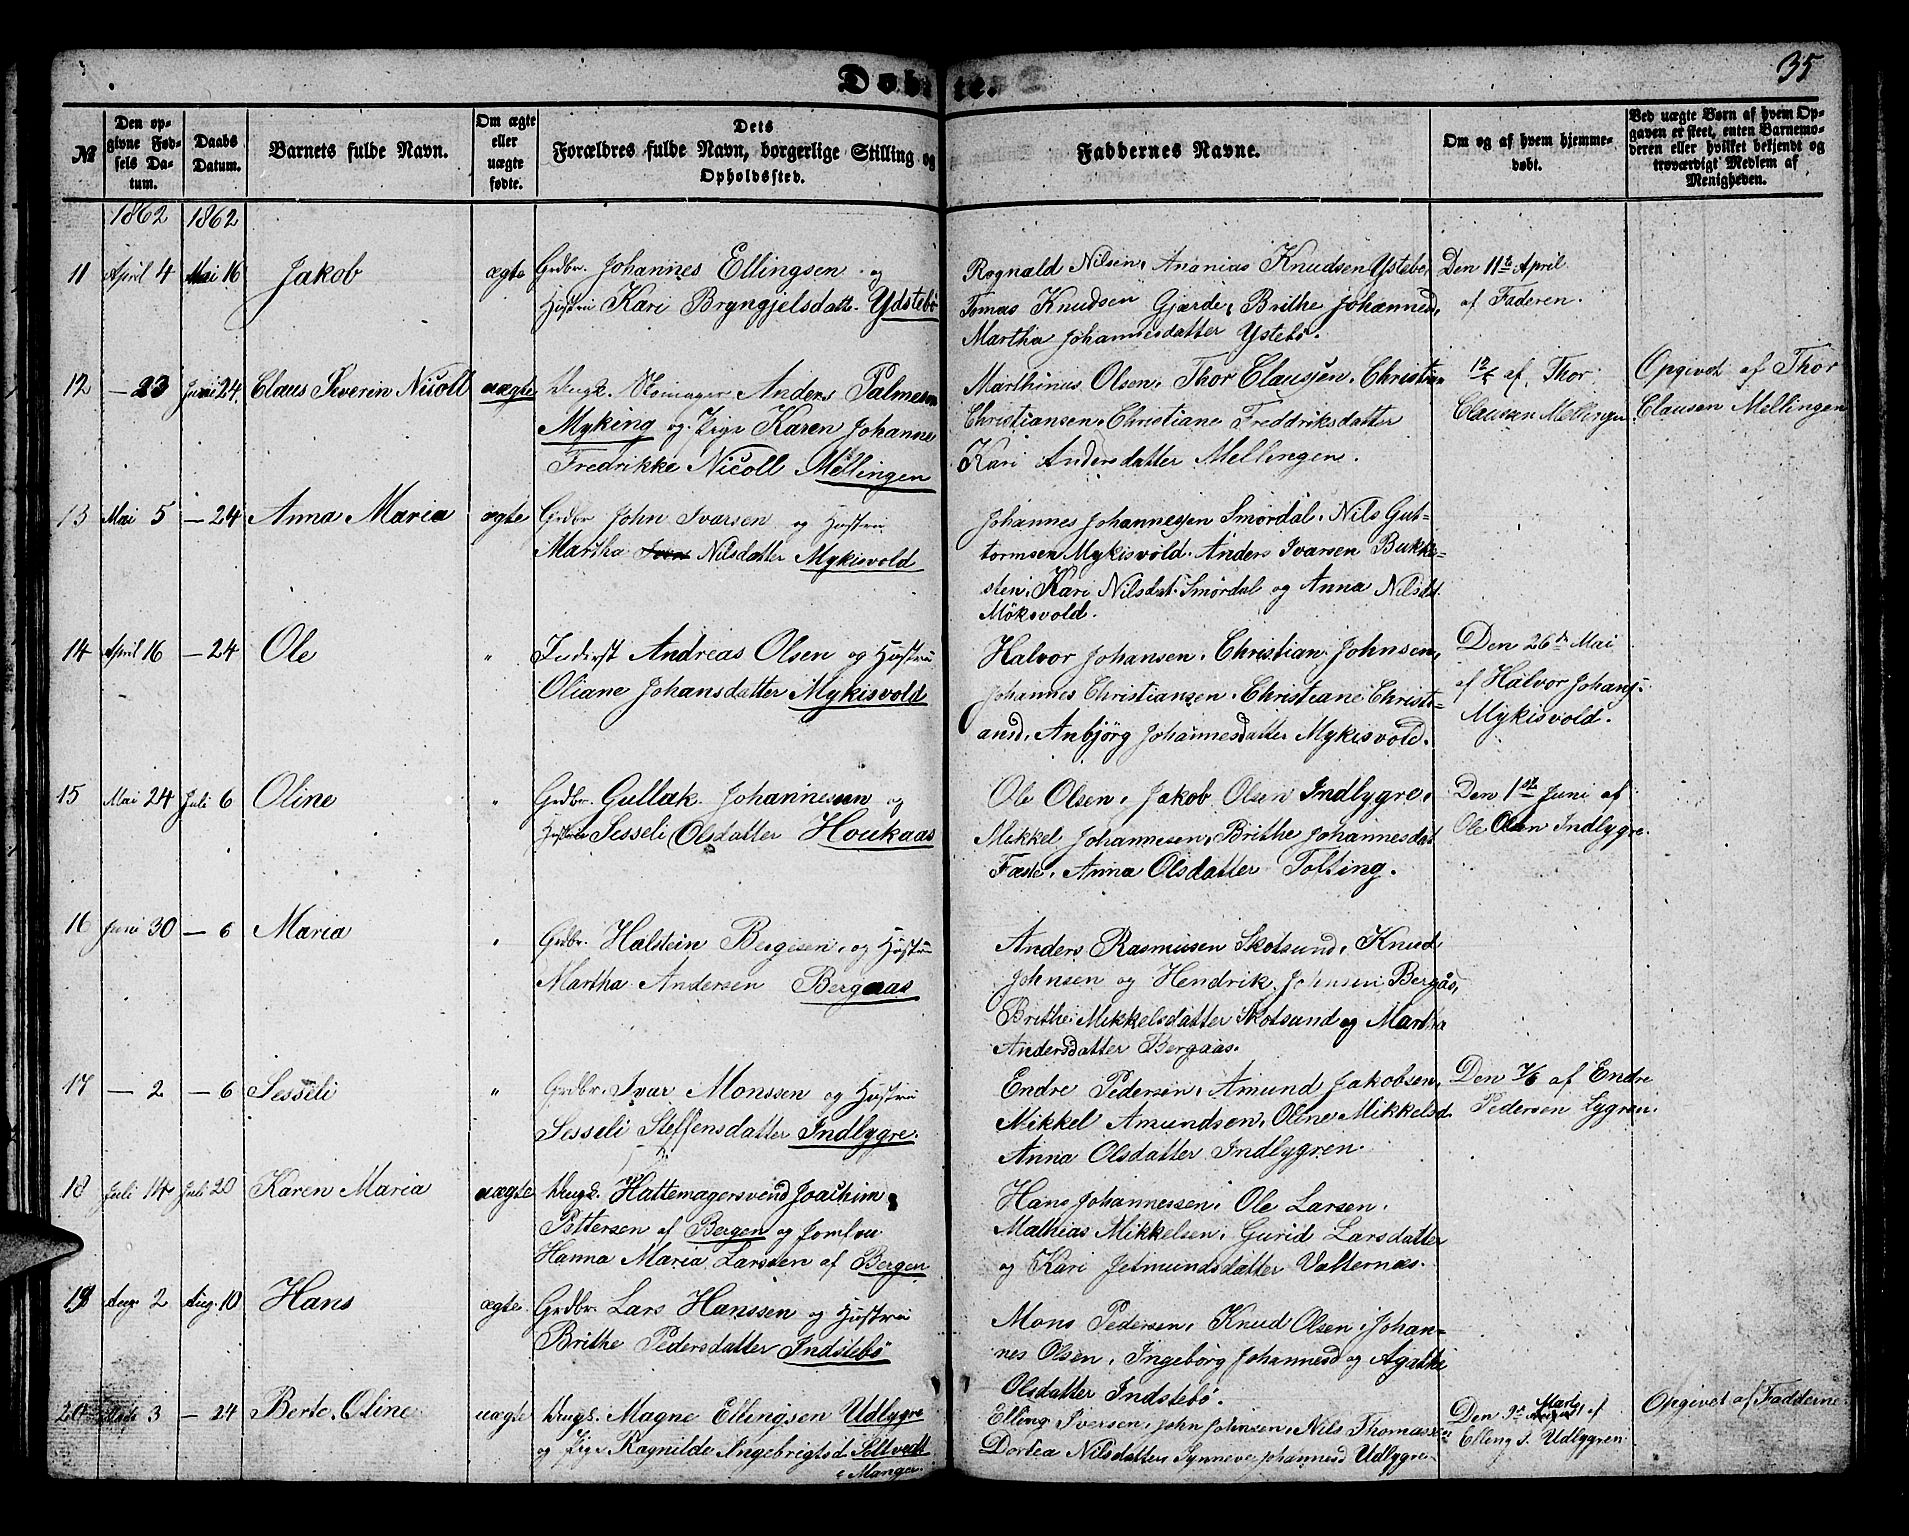 Døbte.
35
№
Den opgivne Fødsels Datum.
Daabs Datum.
Barnets fulde Navn.
Om ægte eller uægte fødte.
Dets Forældres fulde Navn, borgerlige Stilling og Opholdssted.
Faddernes Navne.
Om og af hvem hjemmedøbt.
Ved uægte Børn af hvem Opgaven er skeet, enten Barnemoderen eller hvilket bekjendt og troværdigt Medlem af Menigheden.
1862 1862
11 April 4 Mai 16 Jakob ægte Grdbr. Johannes Ellingsen og
Hustru Kari Bryngjelsdatte. Ydstebø
Rognald Nilsen, Ananias Knudsen Ystebø,
Tomas Knudsen Gjærde, Brithe Johannesd,
Martha Johannesdatter Ystebø.
Den 11te April
af Faderen.
12 — 23 Juni 24. Claus Severin Nicoll uægte Ungk. Anders Palmesen
Myking og Pige Karen Johanne
Fredrikke Nicoll Mellingen
Marthinus Olsen, Thor Claussen, Christian
Christiansen, Christiane Freddriksdatter
Kari Andersdatter Mellingen.
af Thor
Clausen Mellingen
Opgivet af Thor
Clausen Mellingen
13 Mai 5 — 24 Anna Maria ægte Grdbr John Ivarsen og Hustru
Martha Nilsdatter Mykisvold
Johannes Johannessen Smørdal, Nils Gut-
tormsen Mykisvold. Anders Ivarsen Bukke-
stein, Kari Nilsdat. Smørdal og Anna Nilsdt
Møksvold.
14 April 16 — 24 Ole " Inderst Andreas Olsen og Hustru
Oliane Johansdatter Mykisvold
Halvor Johansen, Christian Johnsen,
Johannes Christiansen, Christiane Christi-
ansd, Anbjørg Johannesdatter Mykisvold.
Den 26de Mai
af Halvor Johans:
Mykisvold.
15 Mai 24 Juli 6 Oline " Grdbr. Gullak Johannesen og
Hustrue Sesseli Olsdatter Houkaas
Ole Olsen, Jakob Olsen Indlygre,
Mikkel Johannesen, Brithe Johannesdat
Faste, Anna Olsdatter Tolting.
Den 1ste Juni af
Ole Olsen Indlygre.
16 Juni 30 — 6 Maria " Grdbr. Halstein Bergesen, og Hustru
Martha Andersen Bergaas
Anders Rasmusen Skotsund, Knud
Johnsen og Hendrik Johnsen Bergås,
Brithe Mikkelsdatter Skotsund og Martha
Andersdatter Bergaas.
17 — 2 — 6 Sesseli " Grdbr. Ivar Monssen og Hustru
Sesseli Steffensdatter Indlygre.
Endre Pedersen, Amund Jakobsen,
Mikkel Amundsen, Oline Mikkelsd.
Anna Olsdatter Indlygren.
Den 7/6 af Endre
Pedersen Lygren.
18 Juli 14 Juli 20 Karen Maria uægte Ungk. Hattemagersvend Joachim
Pettersen af Bergen og Jomfru
Hanna Maria Larssen af Bergen
Hans Johannessen, Ole Larsen,
Mathias Mikkelsen, Gurid Larsdatter
og Kari Jetmundsdatter Valternæs.
19 Aug. 2 Aug. 10 Hans ægte Grdbr. Lars Hanssen og Hustru
Brithe Pedersdatter Indstebø
Mons Pedersen, Knud Olsen, Johan-
nes Olsen, Ingeborg Johannesd og Agathe
Olsdatter Indstebø.
20 3 — 24 Berte Oline uægte Ungk. Magne Ellingsen Udlygre
og Pige Ragnilde Ingebrigtsd. Soltvedt
Manger.
Elling Iversen, John Johnsen, Nils Thomassen
Dortea Nilsdatter, Synneve Johannesd Udlygre.
Den Marts af
Elling I. Udlygren
Opgivet af Fadderne